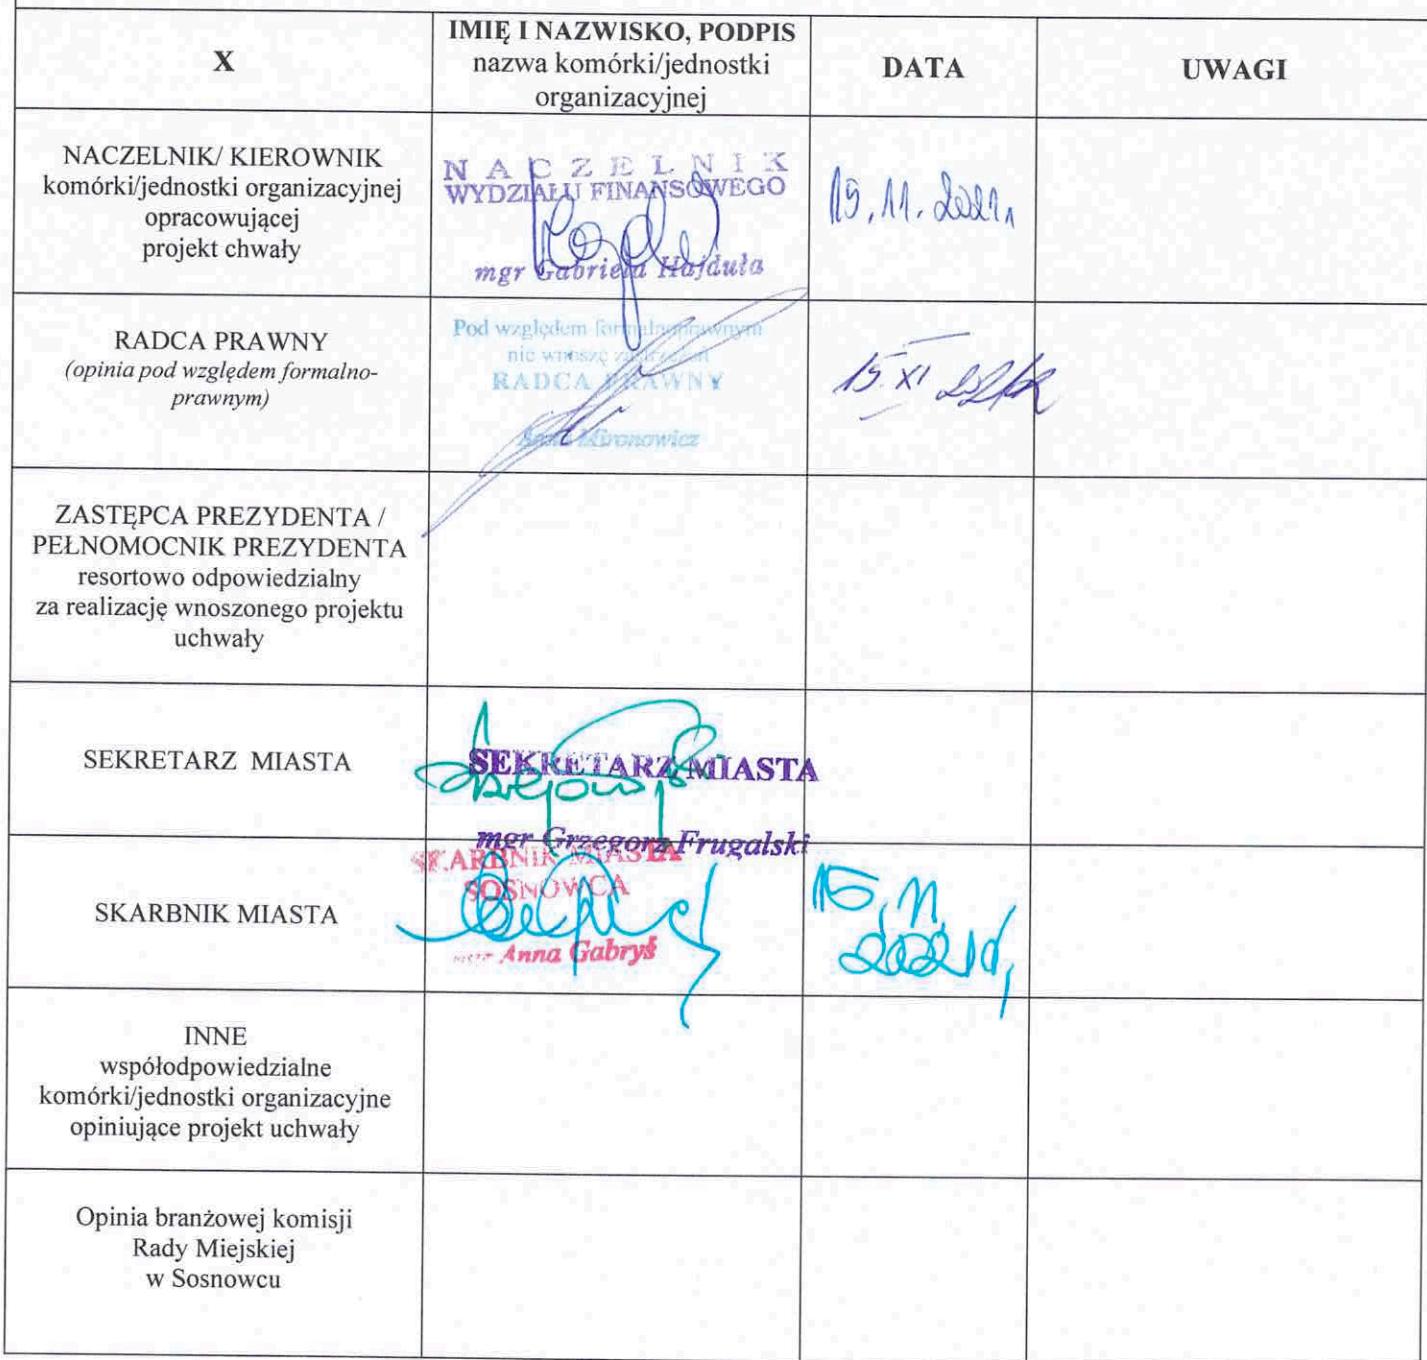 X
IMIĘ I NAZWISKO, PODPIS
nazwa komórki/jednostki
organizacyjnej
DATA
UWAGI
NACZELNIK/ KIEROWNIK
komórki/jednostki organizacyjnej
opracowującej
projekt chwały
NACZELNIK
WYDZIAŁU FINANSOWEGO
mgr Gabriela Hajduła
15.11.2021r.
RADCA PRAWNY
(opinia pod względem formalno-
prawnym)
Pod względem formalnoprawnym
nie wnoszę zastrzeżeń
RADCA PRAWNY
Anna Mironowicz
15 XI 2021r
ZASTĘPCA PREZYDENTA /
PEŁNOMOCNIK PREZYDENTA
resortowo odpowiedzialny
za realizację wnoszonego projektu
uchwały
SEKRETARZ MIASTA
SEKRETARZ MIASTA
mgr Grzegorz Frugalski
SKARBNIK MIASTA
SKARBNIK MIASTA
SOSNOWCA
mgr Anna Gabryś
15.11.
2021r.
INNE
współodpowiedzialne
komórki/jednostki organizacyjne
opiniujące projekt uchwały
Opinia branżowej komisji
Rady Miejskiej
w Sosnowcu